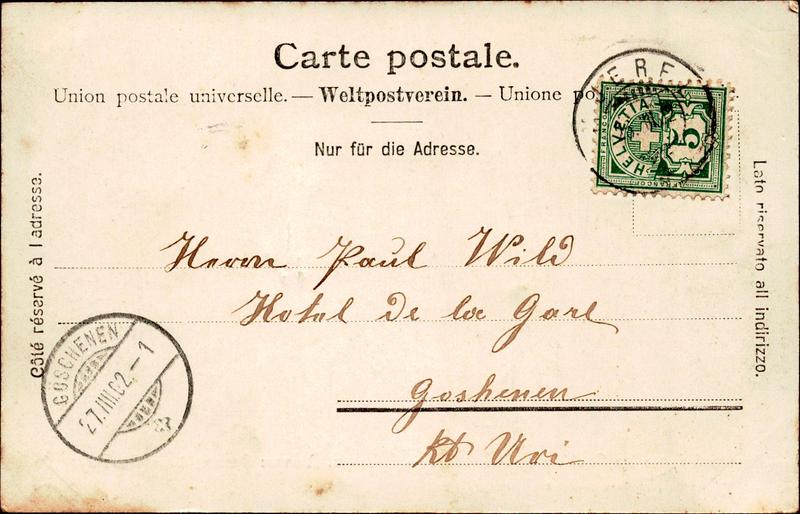 Carte postale.
Union postale universelle. — Weltpostverein. — Unione po
Nur für die Adresse.
HELVETIA
FRANCO
5
FRANCO
Côté réservé à l'adresse.
Lato riservato all indirizzo.
Herrn Paul Wild
Hotel de la Gare
Goshenen
Kt Uri
GÖSCHENEN
27.III.02.–1